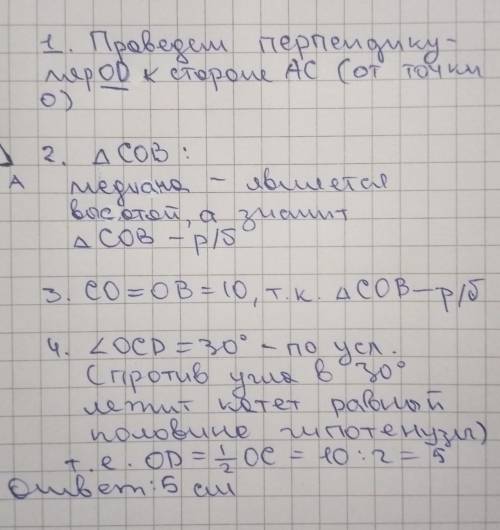 1. Проведем перпендику-
ляр OD к стороне AC (от точки
O)
2. △COB:
A
медиана - является
высотой, а значит
△COB - р/б
3. CO = OB = 10, т.к. △COB - р/б
4. ∠OCD = 30° - по усл.
(против угла в 30°
лежит катет равный
половине гипотенузы)
т.е. OD = 1/2 OC = 10 : 2 = 5
Ответ: 5 см